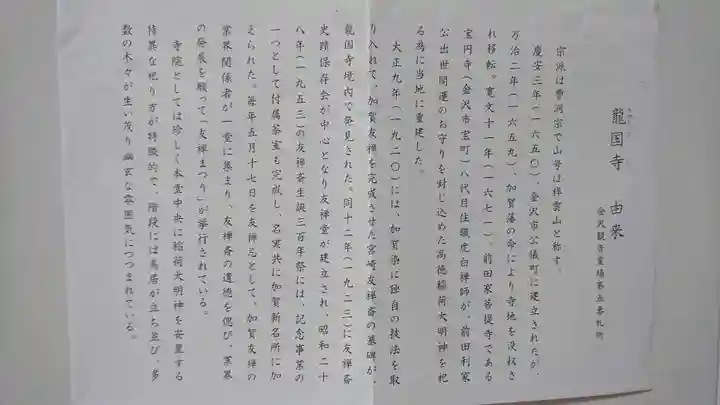 龍国寺 由来
金沢観音霊場第五番札所
宗派は曹洞宗で山号は祥雲山と称す。
慶安三年(一六五〇)、金沢市公儀町に建立されたが、
万治二年(一六五九)、加賀藩の命により寺地を没収さ
れ移転。寛文十一年(一六七一)、前田家菩提寺である
宝円寺(金沢市宝町)八代目住職虎白禅師が、前田利家
公出世開運のお守りを封じ込めた高徳稲荷大明神を祀
る為に当地に重建した。
大正九年(一九二〇)には、加賀染に独自の技法を取
り入れて、加賀友禅を完成させた宮崎友禅斎の墓碑が、
龍国寺境内で発見された。同十二年(一九二三)に友禅斎
史蹟保存会が中心となり友禅堂が建立され、昭和二十
八年(一九五三)の友禅斎生誕三百年祭には、記念事業の
一つとして付属茶室も完成し、名実共に加賀新名所に加
えられた。毎年五月十七日を友禅忌として、加賀友禅の
業界関係者が一堂に集まり、友禅斎の遺徳を偲び、業界
の発展を願って「友禅まつり」が挙行されている。
寺院としては珍しく本堂中央に稲荷大明神を安置する
特異な祀り方が特徴的で、階段には鳥居が立ち並び、多
数の木々が生い茂り幽玄な雰囲気につつまれている。